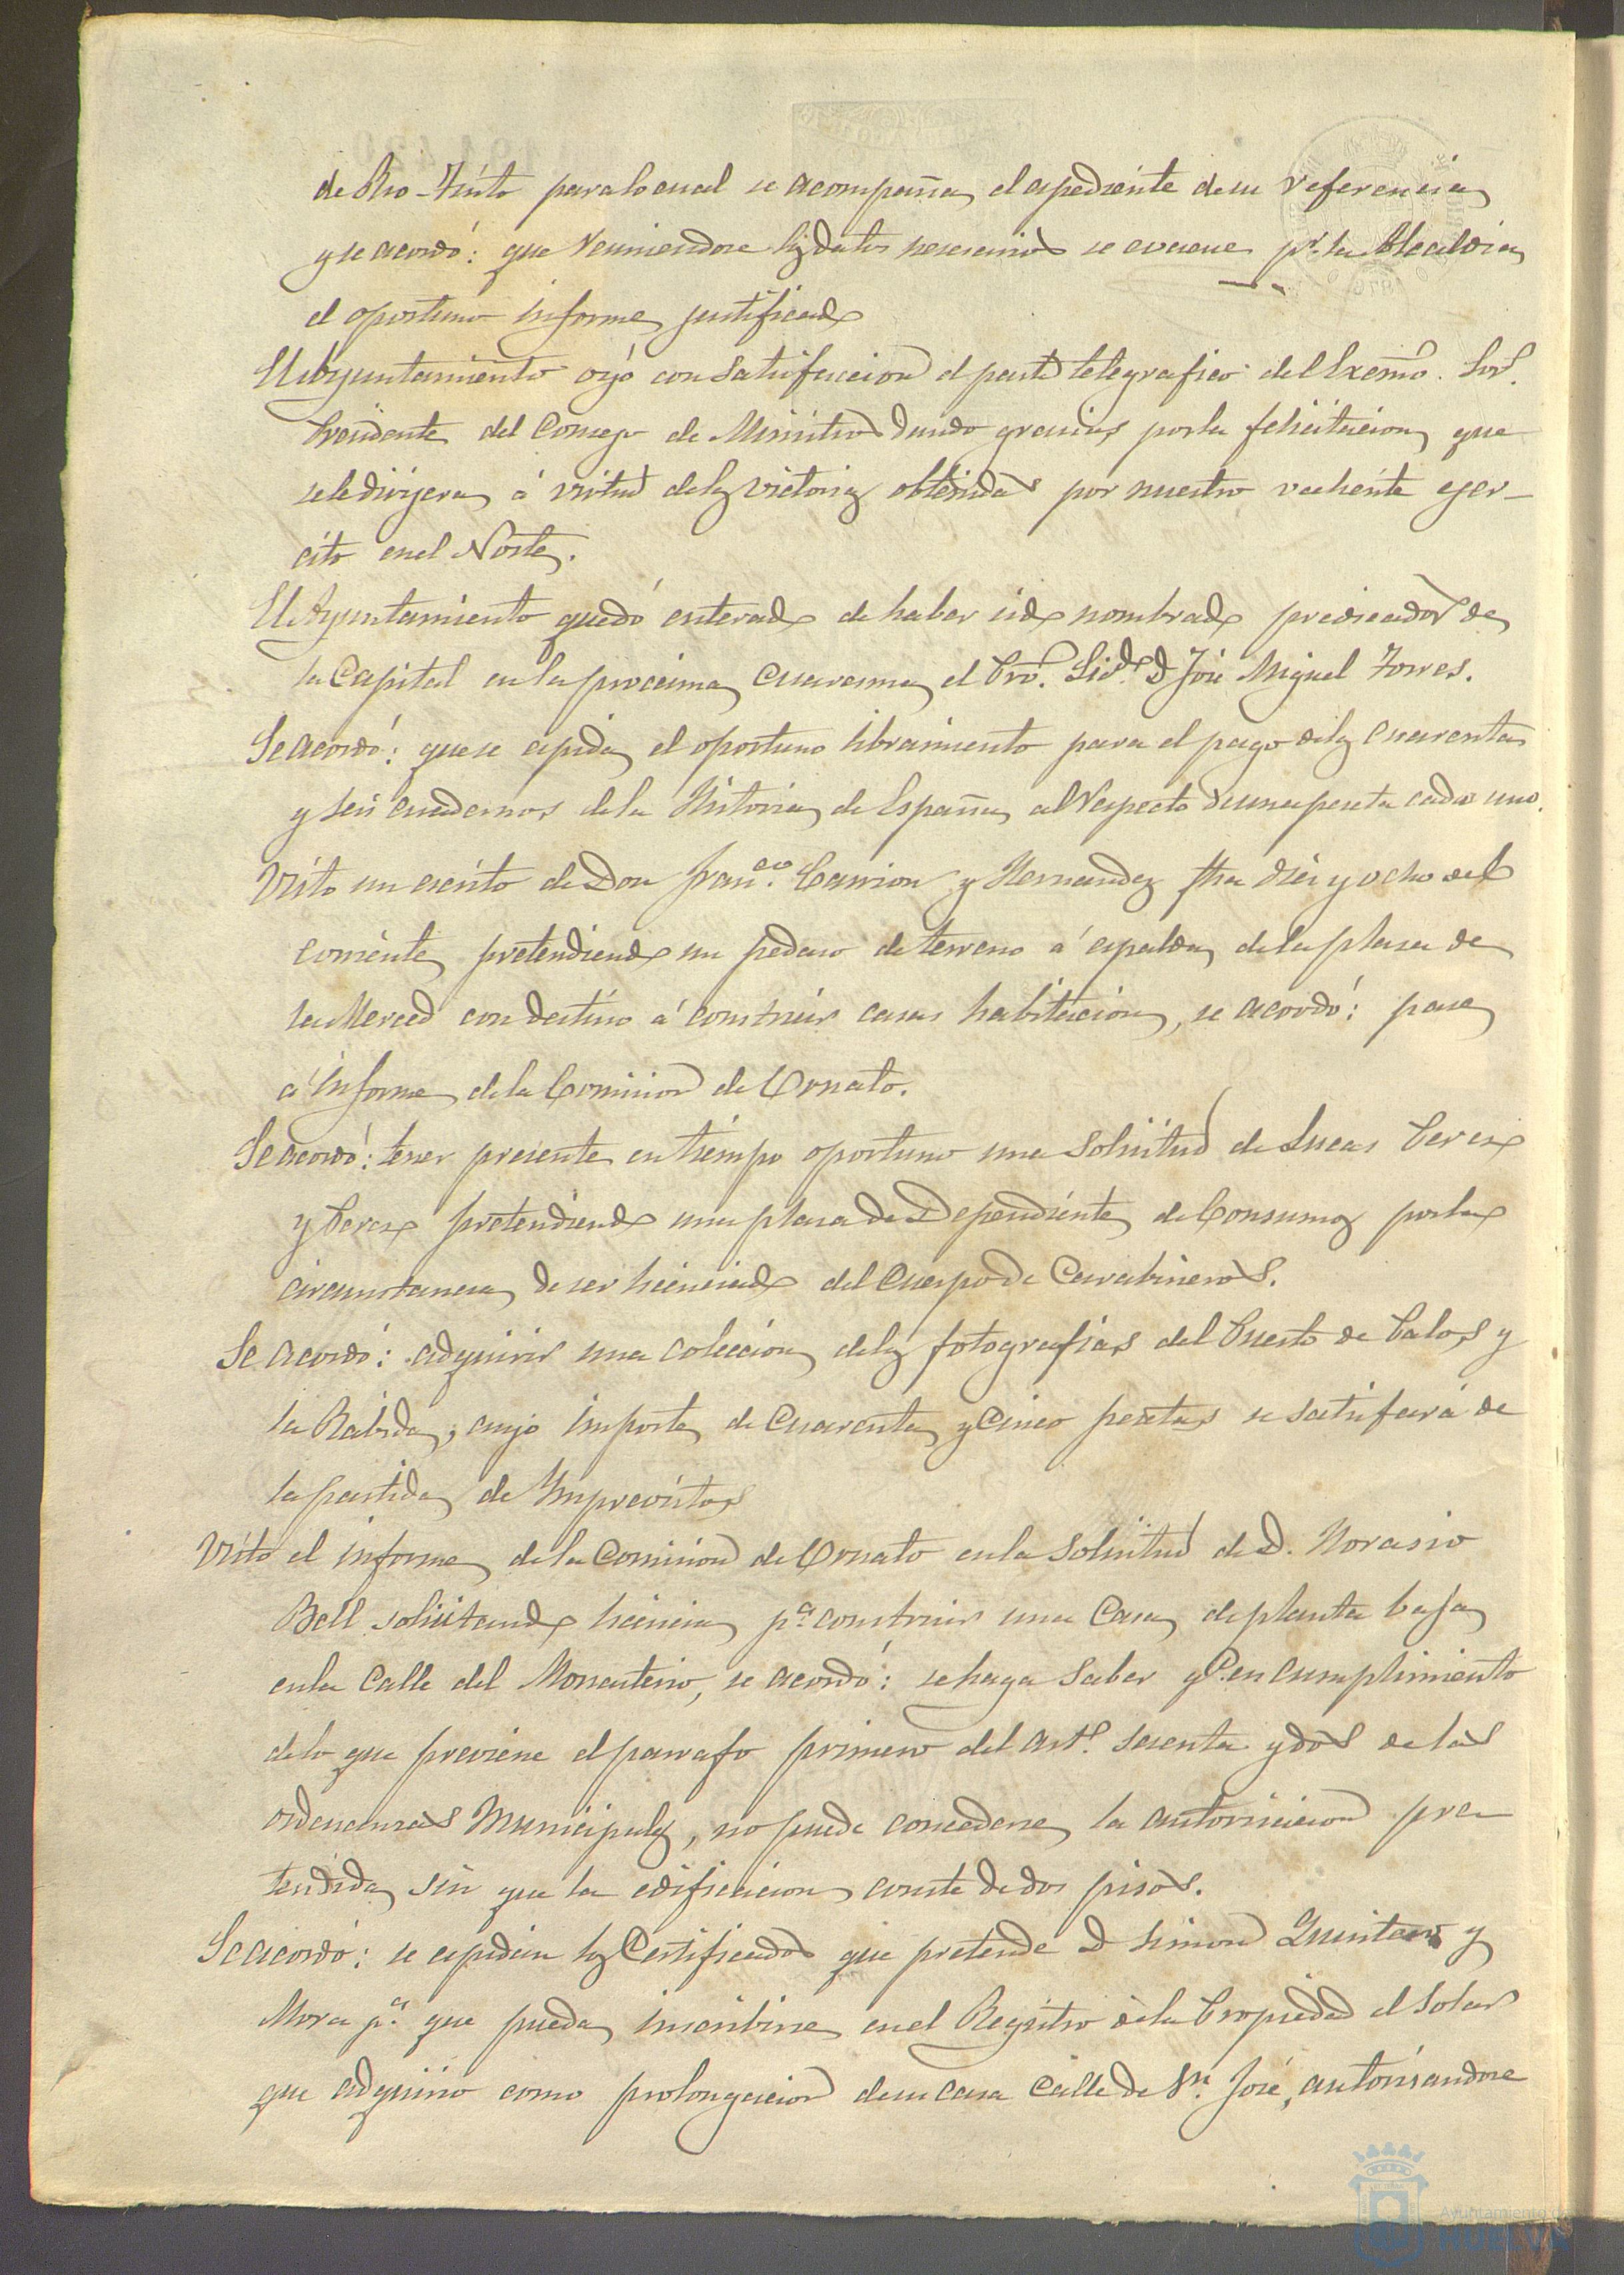 de Rio-Tinto para lo cual se acompaña el espediente de su referencia
y se acordó: que reuniendose los datos nesesarios se evacue pr. la Alcaldia
el oportuno informe justificado
El Ayuntamiento oyó con satisfaccion el parte telegrafico del Excmo. Sor.
Presidente del Consejo de Ministros dando gracias por la felicitacion que
se le dirijera á virtud de las victorias obtenidas por nuestro valiente ejer-
cito en el Norte.
El Ayuntamiento quedó enterado de haber sido nombrado predicador de
la Capital en la procsima Cuaresma el Pro. Lido. D José Miguel Torres.
Se acordó: que se espida el oportuno libramiento para el pago de los cuarenta
y seis cuadernos de la Historia de España al respecto de una peseta cada uno.
Visto un escrito de Don Franco. Carrion y Hernandez fha dies y ocho del
corriente pretendiendo un pedaso de terreno á espalda de la plasa de
la Merced con destino á construir casas habitacion, se acordó: pase
á informe de la Comision de Ornato.
Se acordó: tener presente en tiempo oportuno una solisitud de Lucas Peres
y Peres pretendiendo una plasa de Dependiente de Consumos por la
circunstancia de ser licenciado del Cuerpo de Carabineros.
Se acordó: adquirir una coleccion de las fotografias del Puerto de Palos y
la Rabida, cuyo importe de Cuarenta y Cinco pesetas se satisfará de
la partida de Imprevistos
Visto el informe de la Comision de Ornato en la solisitud de D. Horasio
Bell solisitando licencia pa. construir una Casa de planta baja
en la Calle del Monasterio, se acordó: se haga saber q. en cumplimiento
de lo que previene el parrafo primero del artº. sesenta y dos de las
ordenansas Municipales, no puede concederse la autorisacion pre
tendida sin que la edificacion conste de dos pisos.
Se acordó: se espidan los Certificados que pretende D Simon Quintero y
Mora pa. que pueda inscribirse en el Registro de la Propiedad el Solar
que adquirio como prolongacion de su casa Calle de Sn. José, autorisandose
Ayuntamiento de
HUELVA